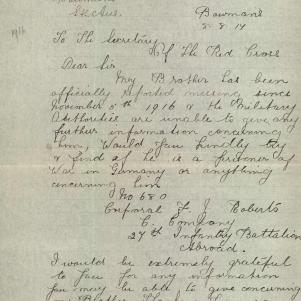 Bowmans
1916
To The Secretary
Of The Red Cross
Dear Sir
My Brother has been
officially reported missing since
November 5th 1916 & the Military
Authorities are unable to give any
further information concerning
him, Would you kindly try
& find if he is a prisoner of
War in Germany or anything
concerning him
No 680
Corporal F. J. Roberts
C. Company
27th Infantry Battalion
Abroad.
I would be extremely grateful
to you for any information
you may be able to give concerning